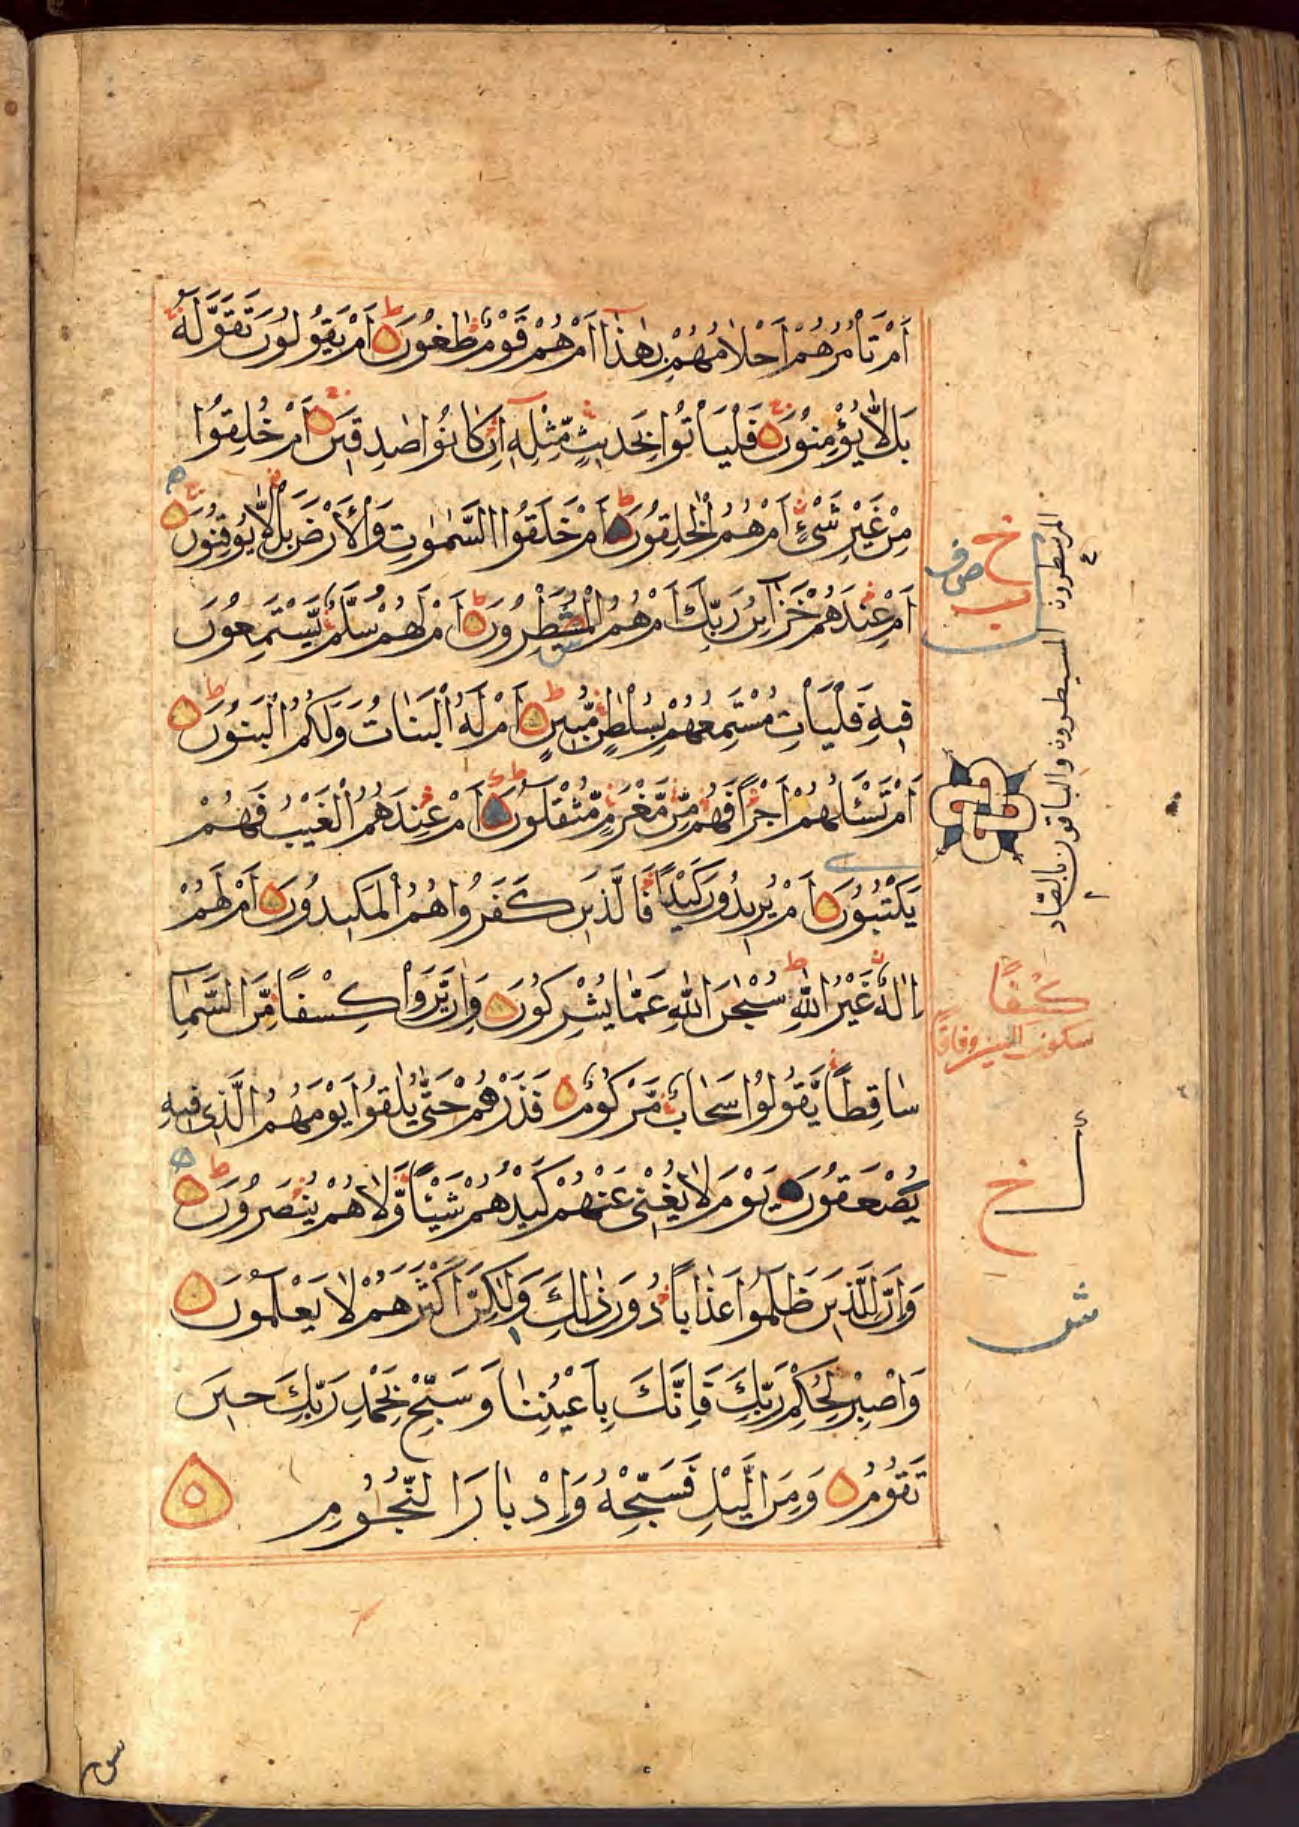 اَمْ تَاْمُرُهُمْ اَحْلَامُهُمْ بِهٰذَا اَمْ هُمْ قَوْمٌ طٰغُوْنَ ۝ ط اَمْ يَقُوْلُوْنَ تَقَوَّلَهٗ ج
بَلْ لَّا يُؤْمِنُوْنَ ۝ ج فَلْيَاْتُوْا بِحَدِيْثٍ مِّثْلِهٖ اِنْ كَانُوْا صٰدِقِيْنَ ۝ اَمْ خُلِقُوْا
مِنْ غَيْرِ شَيْءٍ اَمْ هُمُ الْخٰلِقُوْنَ ۝ ط اَمْ خَلَقُوا السَّمٰوٰتِ وَالْاَرْضَ بَلْ لَّا يُوْقِنُوْنَ ۝
اَمْ عِنْدَهُمْ خَزَآئِنُ رَبِّكَ اَمْ هُمُ الْمُصَۜيْطِرُوْنَ ۝ ط اَمْ لَهُمْ سُلَّمٌ يَّسْتَمِعُوْنَ
فِيْهِ فَلْيَاْتِ مُسْتَمِعُهُمْ بِسُلْطٰنٍ مُّبِيْنٍ ۝ ط اَمْ لَهُ الْبَنَاتُ وَلَكُمُ الْبَنُوْنَ ۝ ط
اَمْ تَسْـَٔلُهُمْ اَجْرًا فَهُمْ مِّنْ مَّغْرَمٍ مُّثْقَلُوْنَ ۝ ط اَمْ عِنْدَهُمُ الْغَيْبُ فَهُمْ
يَكْتُبُوْنَ ۝ اَمْ يُرِيْدُوْنَ كَيْدًا فَالَّذِيْنَ كَفَرُوْا هُمُ الْمَكِيْدُوْنَ ۝ اَمْ لَهُمْ
اِلٰهٌ غَيْرُ اللّٰهِ ط سُبْحٰنَ اللّٰهِ عَمَّا يُشْرِكُوْنَ ۝ وَاِنْ يَّرَوْا كِسْفًا مِّنَ السَّمَآءِ
سَاقِطًا يَّقُوْلُوْا سَحَابٌ مَّرْكُوْمٌ ۝ فَذَرْهُمْ حَتّٰى يُلٰقُوْا يَوْمَهُمُ الَّذِيْ فِيْهِ
يُصْعَقُوْنَ ۝ يَوْمَ لَا يُغْنِيْ عَنْهُمْ كَيْدُهُمْ شَيْـًٔا وَّلَا هُمْ يُنْصَرُوْنَ ۝ ط
وَاِنَّ لِلَّذِيْنَ ظَلَمُوْا عَذَابًا دُوْنَ ذٰلِكَ وَلٰكِنَّ اَكْثَرَهُمْ لَا يَعْلَمُوْنَ ۝
وَاصْبِرْ لِحُكْمِ رَبِّكَ فَاِنَّكَ بِاَعْيُنِنَا وَسَبِّحْ بِحَمْدِ رَبِّكَ حِيْنَ
تَقُوْمُ ۝ وَمِنَ الَّيْلِ فَسَبِّحْهُ وَاِدْبَارَ النُّجُوْمِ ۝
خ
المسيطرون والباقون بالصاد
كِسْفًا
سكون السين وفاقا
خ